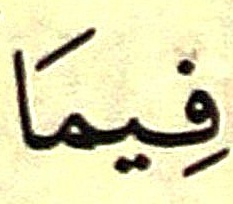 فِيمَا